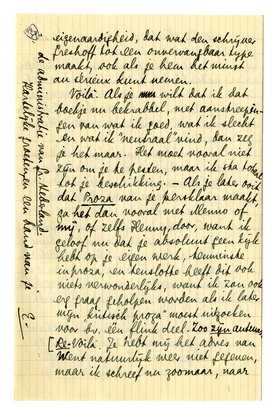 eigenaardigheid, dat wat den schrijver
Greshoff tot een onvervangbaar type
maakt, ook als je hem het minst
au sérieux kunt nemen.
Voilà. Als je wilt dat ik dat
boekje nu bekrabbel, met aanstreepin-
gen van wat ik goed, wat ik slecht
en wat ik "neutraal" vind, dan zeg
je het maar. Het moet vooral niet
zijn om je te pesten, maar ik sta totaal
tot je beschikking. — Als je later ooit
dat Proza van je persklaar maakt,
ga het dan vooral met Menno of
mij, of zelfs Henny, door, want ik
geloof nu dat je absoluut geen kijk
hebt op je eigen werk, tenminste
in proza, en tenslotte heeft dit ook
niets verwonderlijks, want ik zou ook
erg graag geholpen worden als ik later
mijn "kritisch proza" moest uitzoeken
voor bv. één flink deel. Zoo zijn auteurs.
De Voilà. Je hebt mij het adres van
Went natuurlijk weer niet gegeven,
maar ik schreef nu zoomaar, naar
de administratie van Gr. Nederland.
Hartelijke groeten, een hand van je
E.